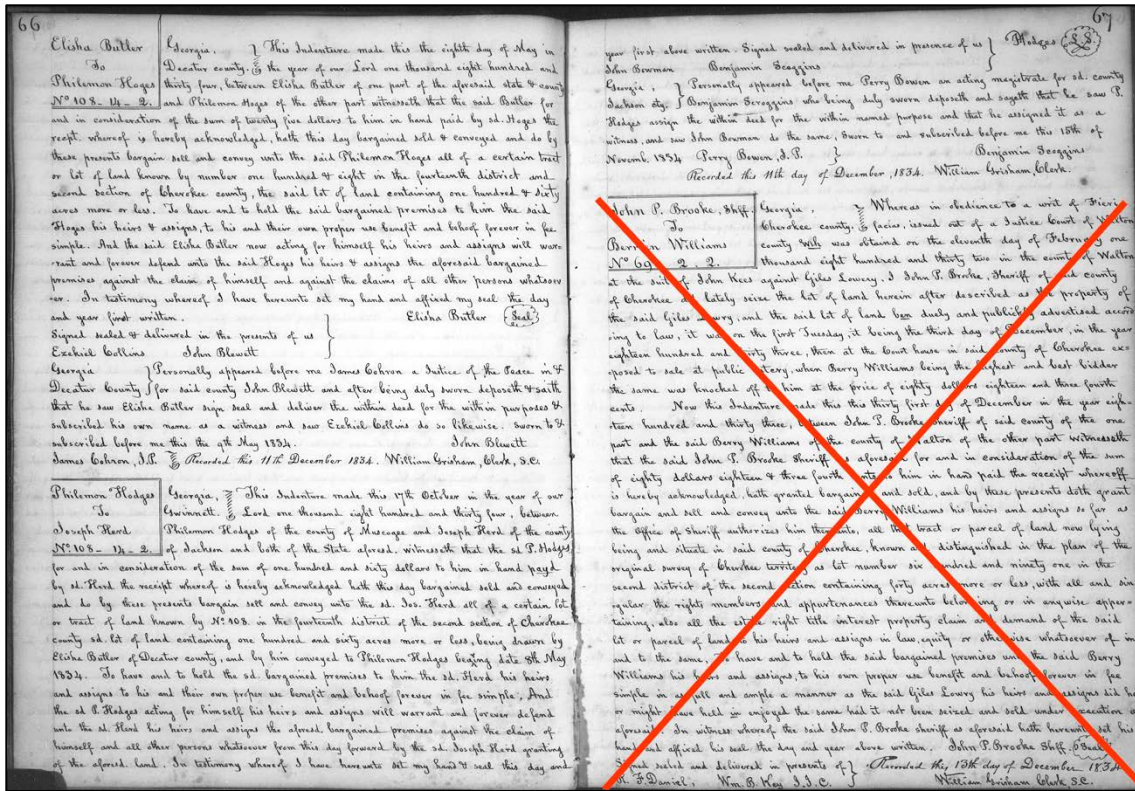 66
Elisha Butler
To
Philemon Hoges
No 108 - 14 - 2.
Georgia, } This Indenture made this the eighth day of May in
Decatur county. } the year of our Lord one thousand eight hundred and
thirty four, between Elisha Butler of one part of the aforesaid state & county
and Philemon Hoges of the other part witnesseth that the said Butler for
and in consideration of the sum of twenty five dollars to him in hand paid by sd. Hoges the
recpt. whereof is hereby acknowledged, hath this day bargained sold & conveyed and do by
these presents bargain sell and convey unto the said Philemon Hoges all of a certain tract
or lot of land known by number one hundred & eight in the fourteenth district and
second section of Cherokee county, the said lot of land containing one hundred & sixty
acres more or less. To have and to hold the said bargained premises to him the said
Hoges his heirs & assigns, to his and their own proper use benefit and behoof forever in fee
simple. And the said Elisha Butler now acting for himself his heirs and assigns will war=
rant and forever defend unto the said Hoges his heirs & assigns the aforesaid bargained
premises against the claim of himself and against the claims of all other persons whatsoev
er. In testimony whereof I have hereunto set my hand and affixed my seal the day
and year first written. } Elisha Butler (Seal)
Signed sealed & delivered in the presents of us
Ezekiel Collins John Blewett
Georgia } Personally appeared before me James Cohron a Justice of the Peace in &
Decatur County } for said county John Blewett and after being duly sworn, deposeth & saith
that he saw Elisha Butler sign seal and deliver the within deed for the within purposes &
subscribed his own name as a witness and saw Ezekiel Collins do so likewise. Sworn to &
subscribed before me this the 9th May 1834. John Blewett
James Cohron, J.P. } Recorded this 11th December 1834. William Grisham, Clerk, S.C.
Philemon Hodges
To
Joseph Herd.
No 108 - 14 - 2.
Georgia, } This Indenture made this 17th October in the year of our
Gwinnett. } Lord one thousand eight hundred and thirty four, between
Philemon Hodges of the county of Muscogee and Joseph Herd of the county
of Jackson and both of the State aforesd. witnesseth that the sd P. Hodges
for and in consideration of the sum of one hundred and sixty dollars to him in hand payd
by sd. Herd the receipt whereof is hereby acknowledged hath this day bargained sold and conveyed
and do by these presents bargain sell and convey unto the sd. Jos. Herd all of a certain lot
or tract of land known by No 108. in the fourteenth district of the second section of Cherokee
county sd. lot of land containing one hundred and sixty acres more or less, being drawn by
Elisha Butler of Decatur county, and by him conveyed to Philemon Hodges beging date 8th May
1834. To have and to hold the sd. bargained premises to him the sd. Herd his heirs
and assigns to his and their own proper use benefit and behoof forever in fee simple, And
the sd P. Hodges acting for himself his heirs and assigns will warrant and forever defend
unto the sd Herd his heirs and assigns the aforesd. bargained premises against the claim of
himself and all other persons whatsoever from this day forward by the sd. Joseph Herd granting
of the aforesd. land. In testimony whereof I have hereunto set my hand & seal this day and
67
year first above written. Signed sealed and delivered in presence of us } P Hodges (L.S)
John Bowman Benjamin Scoggins
Georgia, } Personally appeared before me Perry Bowen an acting magistrate for sd. county
Jackson cty. } Benjamin Scroggins who being duly sworn deposeth and sayeth that he saw P.
Hodges assign the within deed for the within named purpose and that he assigned it as a
witness, and saw John Bowman do the same, Sworn to and subscribed before me this 15th of
Novemb, 1834 Perry Bowen, J.P. } Benjamin Scoggins
Recorded this 11th day of December, 1834. William Grisham, Clerk.
John P. Brooke, Shff.
To
Berrian Williams
No 69 2. 2.
Georgia, } Whereas in obedience to a writ of Fieri
Cherokee county. } facias, issued out of a Justice Court of Walton
county wch was obtained on the eleventh day of February one
thousand eight hundred and thirty two in the county of Walton
at the suit of John Kees against Giles Lowery, I John P. Brooke, Sheriff of said county
of Cherokee did lately seize the lot of land herein after described as the property of
the said Giles Lowry, and the said lot of land ben duely and publickly advertised accord
ing to law, it was on the first Tuesday, it being the third day of December, in the year
eighteen hundred and thirty three, then at the Court house in said county of Cherokee ex=
posed to sale at public outery, when Berry Williams being the highest and best bidder
the same was knocked off to him at the price of eighty dollars eighteen and three fourth
cents. Now this Indenture made this this thirty first day of December in the year eigh=
teen hundred and thirty three, between John P. Brooke Sheriff of said county of the one
part and the said Berry Williams of the county of Walton of the other part witnesseth
that the said John P. Brooke Sheriff as aforesaid for and in consideration of the sum
of eighty dollars eighteen & three fourth cents to him in hand paid the receipt whereoff
is hereby acknowledged, hath granted bargained and sold, and by these presents doth grant
bargain and sell and convey unto the said Berry Williams his heirs and assigns so far as
the Office of Sheriff authorizes him thereunto, all that tract or parcel of land now lying
being and situate in said county of Cherokee, known and distinguished in the plan of the
original survey of Cherokee territory as lot number six hundred and ninety one in the
second district of the second section containing forty acres more or less, with all and sin
gular the rights members and appurtenances thereunto belonging or in anywise apper=
taining, also all the estate right title interest property claim and demand of the said
lot or parcel of land to his heirs and assigns in law, equity or otherwise whatsoever of in
and to the same, To have and to hold the said bargained premises unto the said Berry
Williams his heirs and assigns, to his own proper use benefit and behoof forever in fee
simple in as full and ample a manner as the said Giles Lowry his heirs and assigns did ho
or might have held in enjoyed the same had it not been seized and sold under execution a
aforesaid. In witness whereof the said John P. Brooke sheriff as aforesaid hath hereunto set his
hand and affixed his seal the day and year above written. John P. Brooke Shff. (Seal)
Signed sealed and delivered in presents of } Recorded this 13th day of December 1834
R. F. Daniel, Wm. B. Key J.I.C. } William Grisham Clerk S.C.